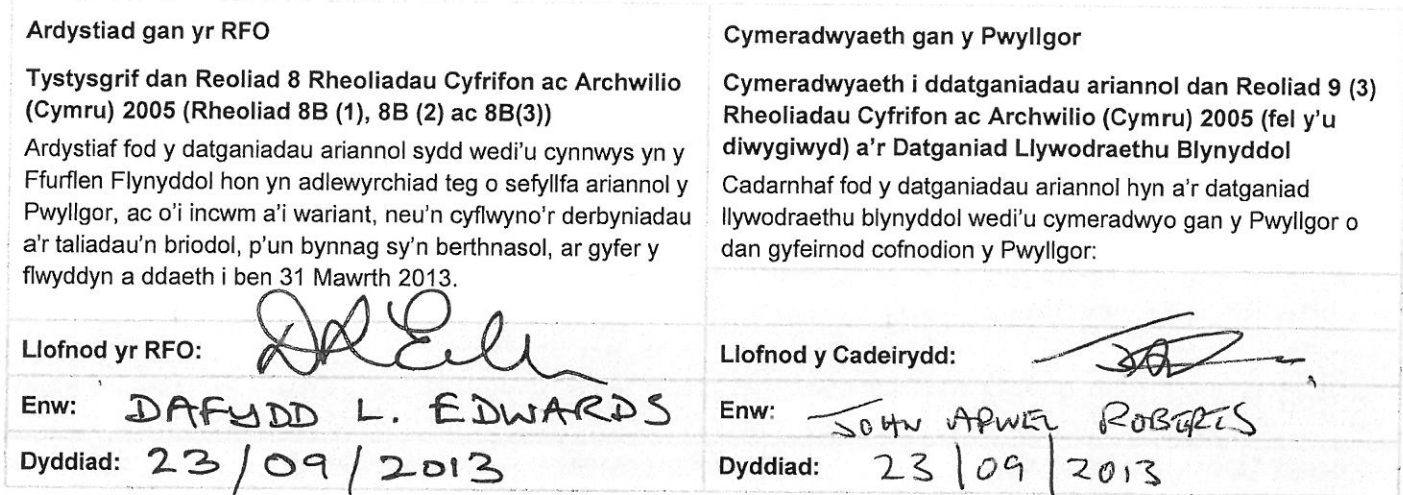 Ardystiad gan yr RFO
Tystysgrif dan Reoliad 8 Rheoliadau Cyfrifon ac Archwilio
(Cymru) 2005 (Rheoliad 8B (1), 8B (2) ac 8B(3))
Ardystiaf fod y datganiadau ariannol sydd wedi'u cynnwys yn y
Ffurflen Flynyddol hon yn adlewyrchiad teg o sefyllfa ariannol y
Pwyllgor, ac o'i incwm a'i wariant, neu'n cyflwyno'r derbyniadau
a'r taliadau'n briodol, p'un bynnag sy'n berthnasol, ar gyfer y
flwyddyn a ddaeth i ben 31 Mawrth 2013.
Llofnod yr RFO:
Enw: DAFYDD L. EDWARDS
Dyddiad: 23/09/2013
Cymeradwyaeth gan y Pwyllgor
Cymeradwyaeth i ddatganiadau ariannol dan Reoliad 9 (3)
Rheoliadau Cyfrifon ac Archwilio (Cymru) 2005 (fel y'u
diwygiwyd) a'r Datganiad Llywodraethu Blynyddol
Cadarnhaf fod y datganiadau ariannol hyn a'r datganiad
llywodraethu blynyddol wedi'u cymeradwyo gan y Pwyllgor o
dan gyfeirnod cofnodion y Pwyllgor:
Llofnod y Cadeirydd:
Enw: JOHN ARWEL ROBERTS
Dyddiad: 23/09/2013